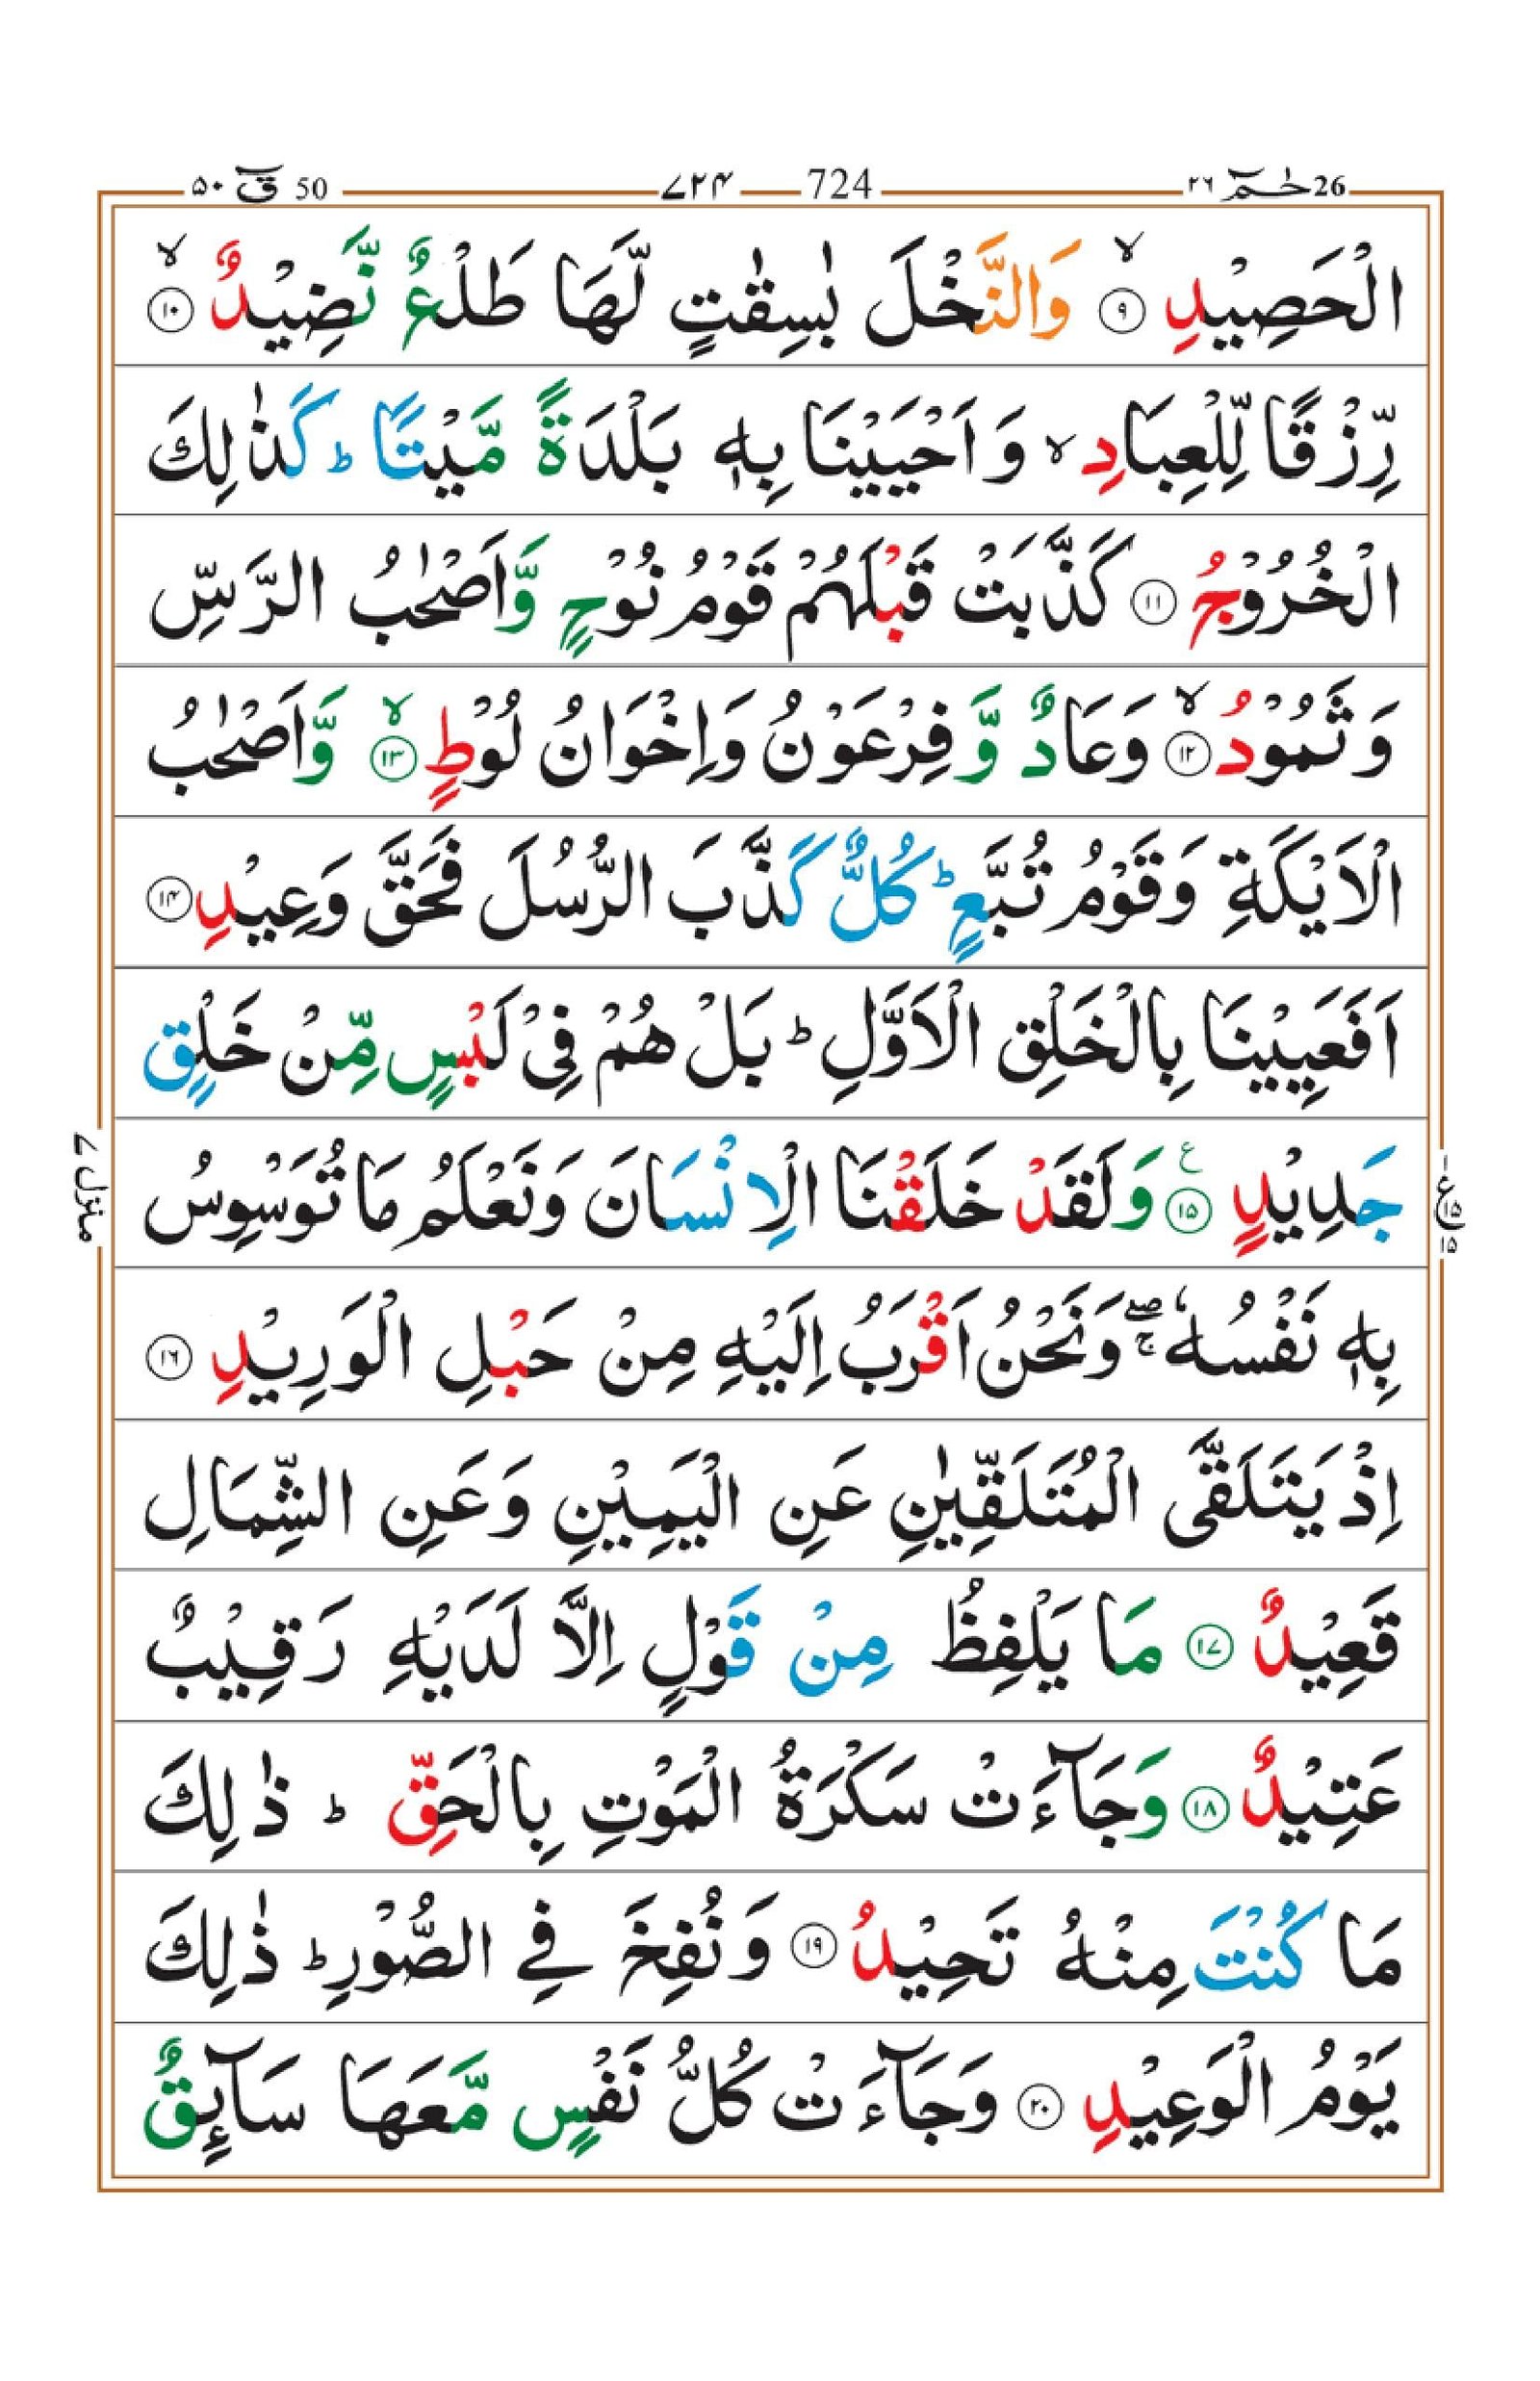 26 حٰمٓ ٢٦
724 ۷۲۴
50 قٓ ۵۰
الْحَصِيْدِ ۙ‏﴿۹﴾ وَالنَّخْلَ بٰسِقٰتٍ لَّهَا طَلْعٌ نَّضِيْدٌ ۙ‏﴿۱۰﴾
رِّزْقًا لِّلْعِبَادِ ۙ وَاَحْيَيْنَا بِهٖ بَلْدَةً مَّيْتًا ؕ كَذٰلِكَ
الْخُرُوْجُ ﴿۱۱﴾ كَذَّبَتْ قَبْلَهُمْ قَوْمُ نُوْحٍ وَّاَصْحٰبُ الرَّسِّ
وَثَمُوْدُ ۙ‏﴿۱۲﴾ وَعَادٌ وَّفِرْعَوْنُ وَاِخْوَانُ لُوْطٍ ۙ‏﴿۱۳﴾ وَّاَصْحٰبُ
الْاَيْكَةِ وَقَوْمُ تُبَّعٍ ؕ كُلٌّ كَذَّبَ الرُّسُلَ فَحَقَّ وَعِيْدِ ﴿۱۴﴾
اَفَعَيِيْنَا بِالْخَلْقِ الْاَوَّلِ ؕ بَلْ هُمْ فِيْ لَبْسٍ مِّنْ خَلْقٍ
جَدِيْدٍ ۧ﴿۱۵﴾ وَلَقَدْ خَلَقْنَا الْاِنْسَانَ وَنَعْلَمُ مَا تُوَسْوِسُ
بِهٖ نَفْسُهٗ ۖۚ وَنَحْنُ اَقْرَبُ اِلَيْهِ مِنْ حَبْلِ الْوَرِيْدِ ﴿۱۶﴾
اِذْ يَتَلَقَّى الْمُتَلَقِّيٰنِ عَنِ الْيَمِيْنِ وَعَنِ الشِّمَالِ
قَعِيْدٌ ﴿۱۷﴾ مَا يَلْفِظُ مِنْ قَوْلٍ اِلَّا لَدَيْهِ رَقِيْبٌ
عَتِيْدٌ ﴿۱۸﴾ وَجَآءَتْ سَكْرَةُ الْمَوْتِ بِالْحَقِّ ؕ ذٰلِكَ
مَا كُنْتَ مِنْهُ تَحِيْدُ ﴿۱۹﴾ وَنُفِخَ فِي الصُّوْرِ ؕ ذٰلِكَ
يَوْمُ الْوَعِيْدِ ﴿۲۰﴾ وَجَآءَتْ كُلُّ نَفْسٍ مَّعَهَا سَآئِقٌ
منزل ۷
۱
ع
۱۵
۱۵